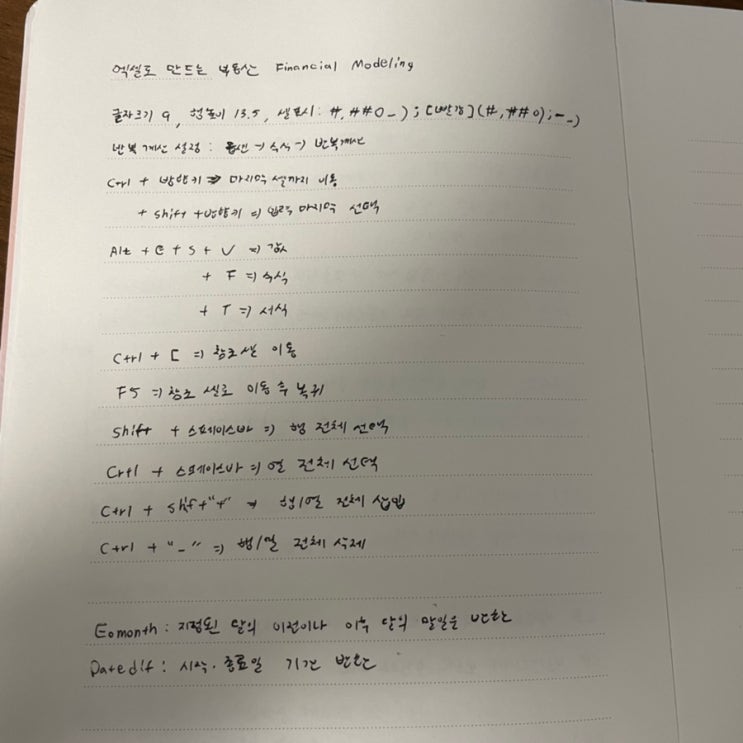 엑셀로 만드는 부동산 Financial Modeling
글자크기 9, 행높이 13.5, 셀표시: #,##0_);[빨강](#,##0);-_)
반복계산 설정: 옵션 ⇒ 수식 ⇒ 반복계산
Ctrl + 방향키 ⇒ 마지막 셀까지 이동
+ shift + 방향키 ⇒ 입력 마지막 선택
Alt + E + S + V ⇒ 값
+ F ⇒ 수식
+ T ⇒ 서식
Ctrl + [ ⇒ 참조셀 이동
F5 ⇒ 참조 셀로 이동 후 복귀
Shift + 스페이스바 ⇒ 행 전체 선택
Crtl + 스페이스바 ⇒ 열 전체 선택
Ctrl + Shift "+" ⇒ 행/열 전체 삽입
Ctrl + "-" ⇒ 행/열 전체 삭제
Eomonth: 지정된 달의 이전이나 이후 달의 말일을 반환
Datedif: 시작·종료일 기간 반환